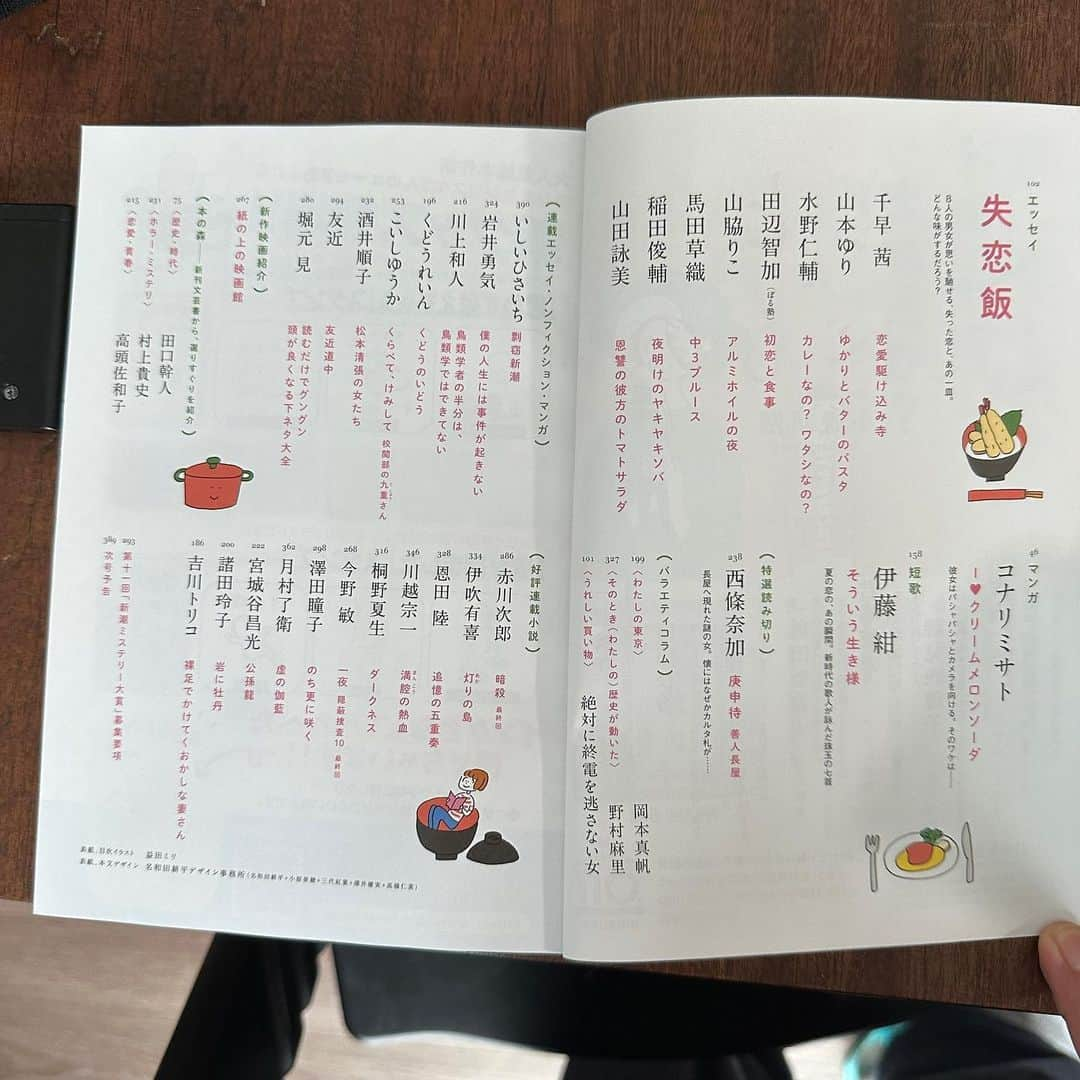 102 エッセイ
失恋飯
8人の男女が思いを馳せる、失った恋と、あの一皿。
どんな味がするだろう？
千早 茜 恋愛駆け込み寺
山本ゆり ゆかりとバターのパスタ
水野仁輔 カレーなの？ワタシなの？
田辺智加（ぼる塾） 初恋と食事
山脇りこ アルミホイルの夜
馬田草織 中3ブルース
稲田俊輔 夜明けのヤキヤキソバ
山田詠美 恩讐の彼方のトマトサラダ
46 マンガ
コナリミサト I♥クリームメロンソーダ
彼女はパシャパシャとカメラを向ける。そのワケは——
158 短歌
伊藤 紺 そういう生き様
夏の恋の、あの瞬間。新時代の歌人が詠んだ珠玉の七首
（特選読み切り）
238 西條奈加 庚申待 善人長屋
長屋へ現れた謎の女。懐にはなぜかカルタ札が……
（バラエティコラム）
199〈わたしの東京〉 岡本真帆
327〈そのとき（わたしの）歴史が動いた〉 野村麻里
101〈うれしい買い物〉 絶対に終電を逃さない女
（連載エッセイ・ノンフィクション・マンガ）
390 いしいひさいち 剽窃新潮
324 岩井勇気 僕の人生には事件が起きない
216 川上和人 鳥類学者の半分は、
鳥類学ではできてない
196 くどうれいん くどうのいどう
253 こいしゆうか くらべて、けみして 校閲部の九重さん
232 酒井順子 松本清張の女たち
294 友近 友近道中
280 堀元 見 読むだけでグングン
頭が良くなる下ネタ大全
（新作映画紹介）
267 紙の上の映画館
（本の森——新刊文芸書から、選りすぐりを紹介）
75〈歴史・時代〉 田口幹人
231〈ホラー・ミステリ〉 村上貴史
215〈恋愛・青春〉 高頭佐和子
（好評連載小説）
286 赤川次郎 暗殺 最終回
334 伊吹有喜 灯りの島
328 恩田 陸 追憶の五重奏
346 川越宗一 満腔の熱血
316 桐野夏生 ダークネス
268 今野 敏 一夜 隠蔽捜査10 最終回
298 澤田瞳子 のち更に咲く
362 月村了衛 虚の伽藍
222 宮城谷昌光 公孫龍
200 諸田玲子 岩に牡丹
186 吉川トリコ 裸足でかけてくおかしな妻さん
293 第十一回「新潮ミステリー大賞」募集要項
389 次号予告
表紙、目次イラスト 益田ミリ
表紙、本文デザイン 名和田耕平デザイン事務所